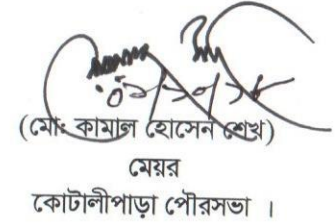 (মোঃ কামাল হোসেন শেখ)
মেয়র
কোটালীপাড়া পৌরসভা ।